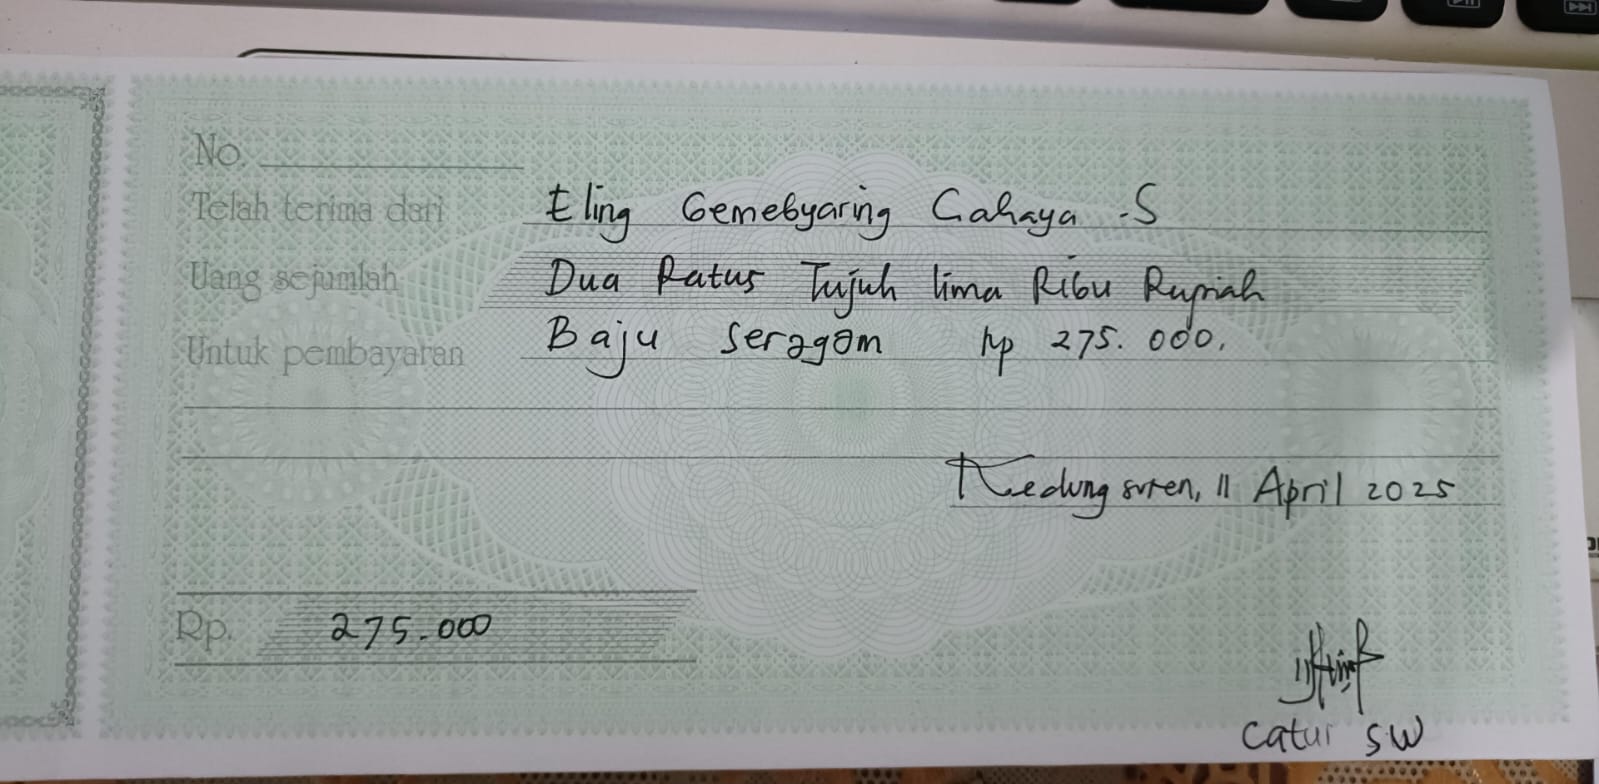 No.
Telah terima dari Eling Gemebyaring Cahaya -S
Uang sejumlah Dua Ratus Tujuh lima Ribu Rupiah
Untuk pembayaran Baju seragam Rp 275.000,
Kedung suren, 11 April 2025
Rp. 275.000
Catur SW